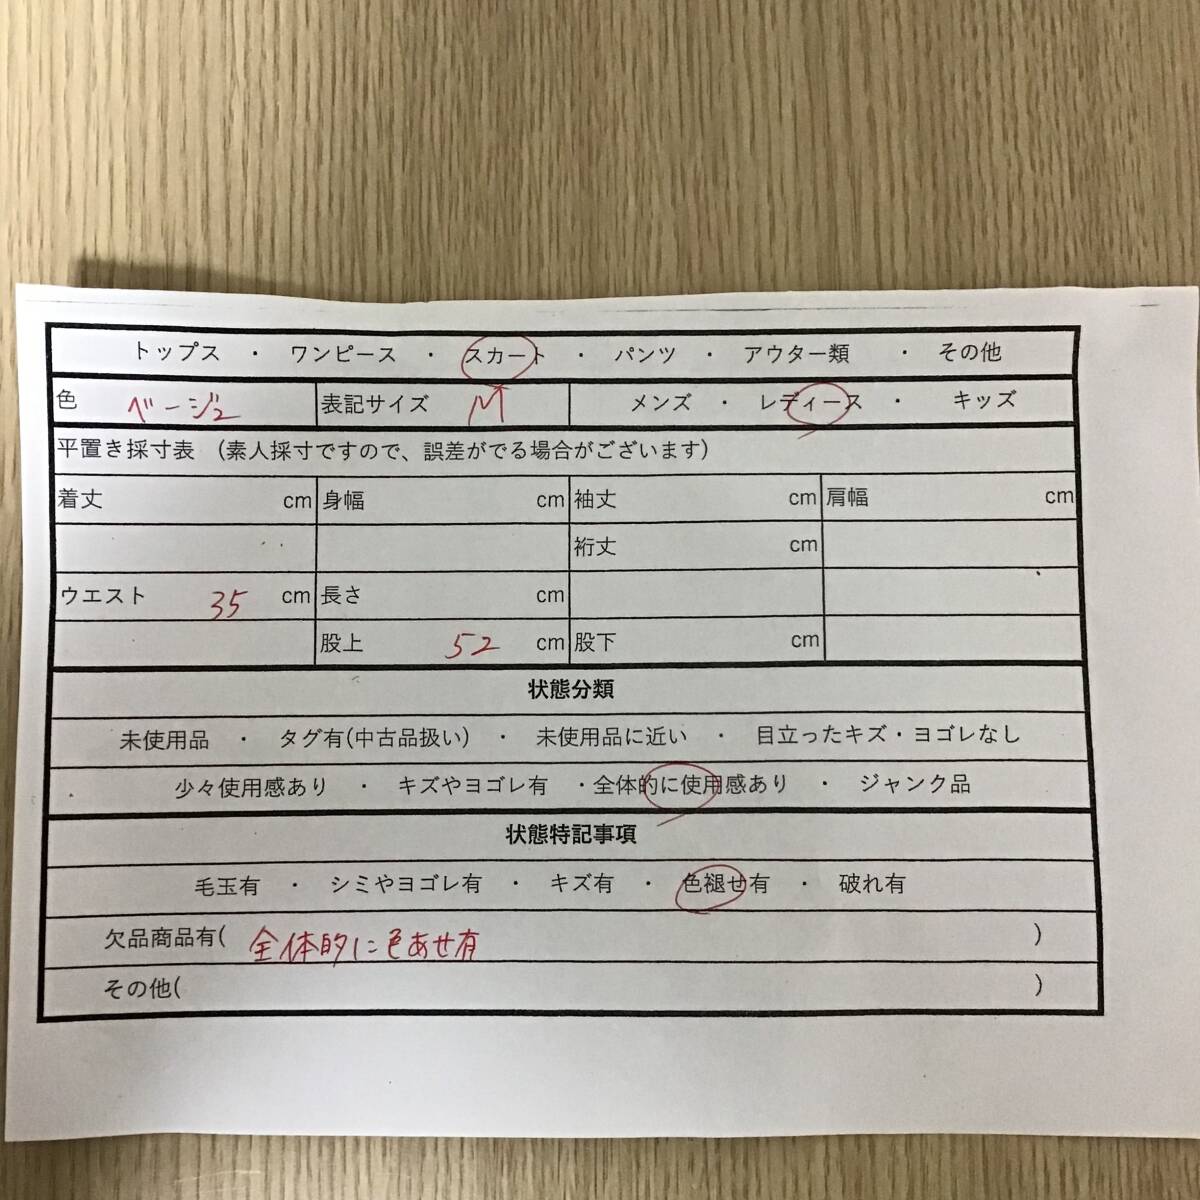 トップス ・ ワンピース ・ スカート ・ パンツ ・ アウター類 ・ その他
色 ベージュ 表記サイズ M メンズ ・ レディース ・ キッズ
平置き採寸表 (素人採寸ですので、誤差がでる場合がございます)
着丈 cm 身幅 cm 袖丈 cm 肩幅 cm
裄丈 cm
ウエスト 35 cm 長さ cm
股上 52 cm 股下 cm
状態分類
未使用品 ・ タグ有(中古品扱い) ・ 未使用品に近い ・ 目立ったキズ・ヨゴレなし
少々使用感あり ・ キズやヨゴレ有 ・全体的に使用感あり ・ ジャンク品
状態特記事項
毛玉有 ・ シミやヨゴレ有 ・ キズ有 ・ 色褪せ有 ・ 破れ有
欠品商品有( 全体的に色あせ有 )
その他( )